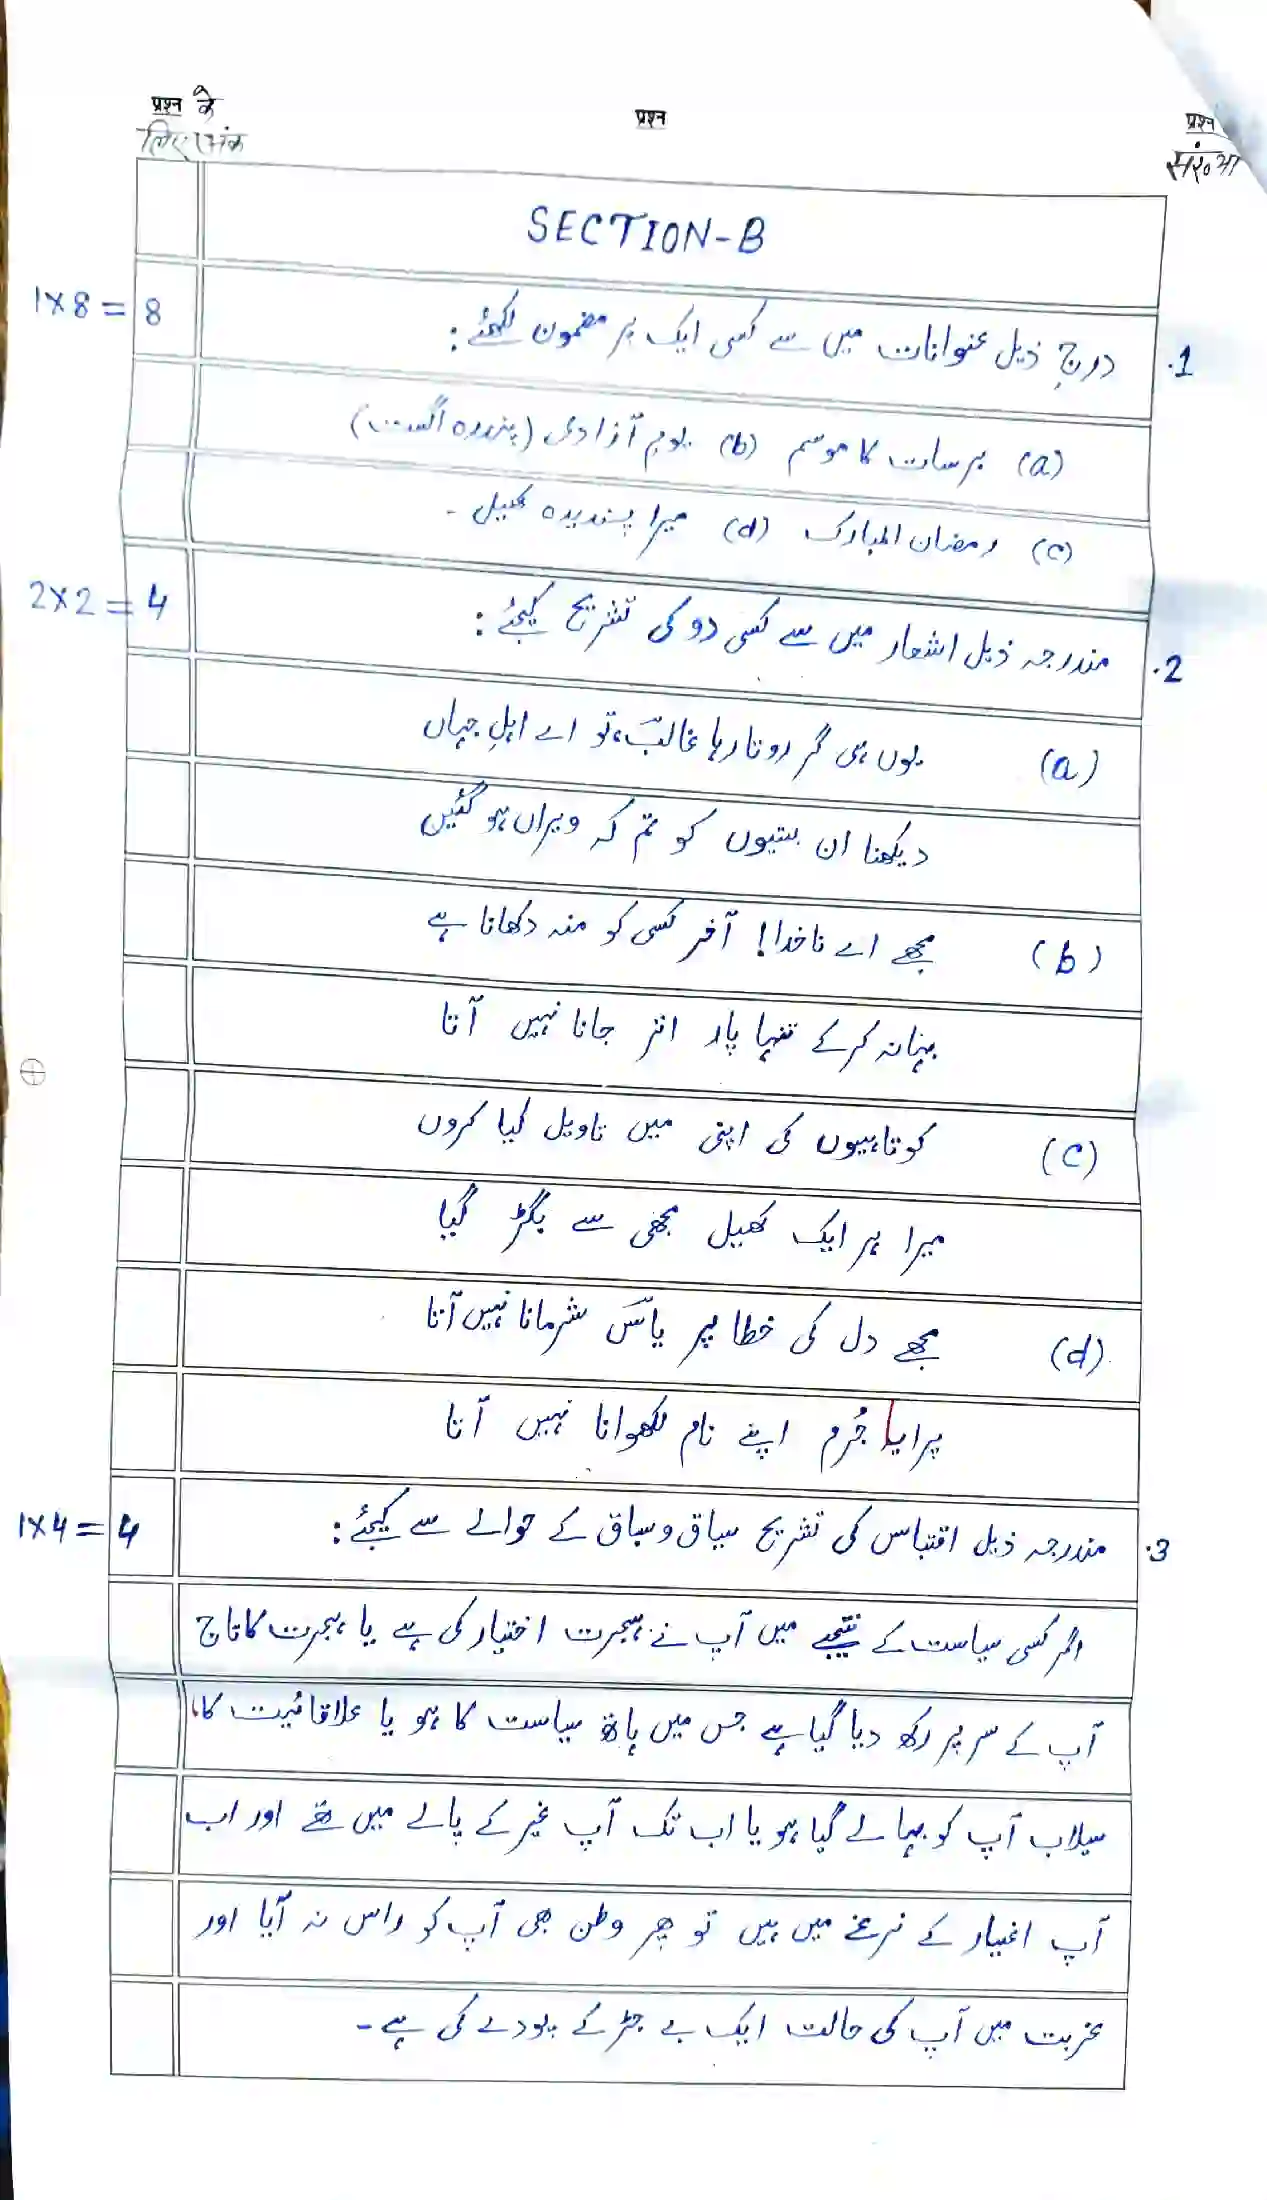 प्रश्न के
लिए अंक
प्रश्न
प्रश्न
संख्या
SECTION-B
1×8=8
1. درج ذیل عنوانات میں سے کسی ایک پر مضمون لکھئے:
(a) برسات کا موسم (b) یوم آزادی (پندرہ اگست)
(c) رمضان المبارک (d) میرا پسندیدہ کھیل۔
2×2=4
2. مندرجہ ذیل اشعار میں سے کسی دو کی تشریح کیجئے:
(a) یوں ہی گر روتا رہا غالبؔ، تو اے اہلِ جہاں
دیکھنا ان بستیوں کو تم کہ ویراں ہو گئیں
(b) مجھے اے ناخدا! آخر کسی کو منہ دکھانا ہے
بہانہ کر کے تنہا پار اتر جانا نہیں آتا
(c) کوتاہیوں کی اپنی میں تاویل کیا کروں
میرا ہر ایک کھیل مجھی سے بگڑ گیا
(d) مجھے دل کی خطا پر یاسؔ شرمانا نہیں آتا
پرایا جُرم اپنے نام لکھوانا نہیں آتا
1×4=4
3. مندرجہ ذیل اقتباس کی تشریح سیاق و سباق کے حوالے سے کیجئے:
اگر کسی سیاست کے نتیجے میں آپ نے ہجرت اختیار کی ہے یا ہجرت کا تاج
آپ کے سر پر رکھ دیا گیا ہے جس میں ہاتھ سیاست کا ہو یا علاقائیت کا،
سیلاب آپ کو بہا لے گیا ہو یا اب تک آپ غیر کے پالے میں تھے اور اب
آپ اغیار کے نرغے میں ہیں تو پھر وطن بھی آپ کو راس نہ آیا اور
غربت میں آپ کی حالت ایک بے جڑ کے پودے کی ہے۔